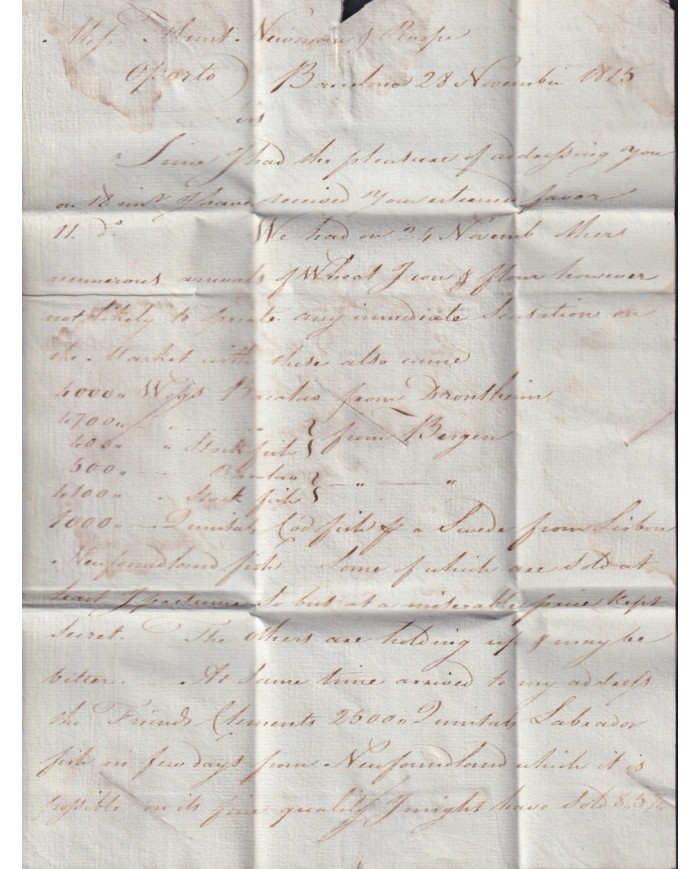 Mess. Hunt Newman & Roope
Oporto Barcelona 28 November 1815
Since I had the pleasure of addressing you
on 18 inst I have received your esteemed favor
11 do. We had on 24 Novemb
numerous arrivals of Wheat & flour however
not likely to create any immediate Sensation on
the Market with these also came
4000 „ Wogs Bacalao from Drontheim
4700 „
400 „ „ Stock fish } from Bergen
500 „ Bacalao
4100 „ „ Stock fish } „ „
1000 „ Quintals Cod fish a Swede from Lisbon
Newfoundland fish Some of which are Sold at
least I presume So but at a miserable price kept
Secret. The others are holding up & may be
better. At Same time arrived to my address
the Friends Clements 2600 „ Quintals Labrador
fish in few days from Newfoundland which it is
possible on its fine quality I might have Sold